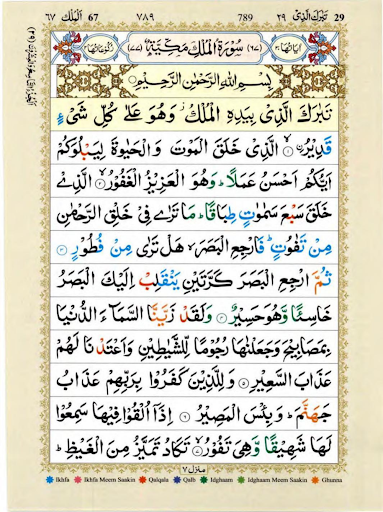 29 تَبٰرَكَ الَّذِىْ ٢٩ 789 ٧٨٩ 67 اَلْمُلْك ٦٧
اٰيَاتُهَا ٣٠ (٦٧) سُوْرَةُ الْمُلْكِ مَكِّيَّةٌ (٧٧) رُكُوْعَاتُهَا ٢
بِسْمِ اللّٰهِ الرَّحْمٰنِ الرَّحِيْمِ
تَبٰرَكَ الَّذِىْ بِيَدِهِ الْمُلْكُ وَهُوَ عَلٰى كُلِّ شَىْءٍ
قَدِيْرُ ۙ﴿۱﴾ الَّذِىْ خَلَقَ الْمَوْتَ وَالْحَيٰوةَ لِيَبْلُوَكُمْ
اَيُّكُمْ اَحْسَنُ عَمَلًا ؕ وَهُوَ الْعَزِيْزُ الْغَفُوْرُ ۙ﴿۲﴾ الَّذِىْ
خَلَقَ سَبْعَ سَمٰوٰتٍ طِبَاقًا ؕ مَا تَرٰى فِىْ خَلْقِ الرَّحْمٰنِ
مِنْ تَفٰوُتٍ ؕ فَارْجِعِ الْبَصَرَ ۙ هَلْ تَرٰى مِنْ فُطُوْرٍ ﴿۳﴾
ثُمَّ ارْجِعِ الْبَصَرَ كَرَّتَيْنِ يَنْقَلِبْ اِلَيْكَ الْبَصَرُ
خَاسِئًا وَّهُوَ حَسِيْرٌ ﴿۴﴾ وَلَقَدْ زَيَّنَّا السَّمَآءَ الدُّنْيَا
بِمَصَابِيْحَ وَجَعَلْنٰهَا رُجُوْمًا لِّلشَّيٰطِيْنِ وَاَعْتَدْنَا لَهُمْ
عَذَابَ السَّعِيْرِ ﴿۵﴾ وَلِلَّذِيْنَ كَفَرُوْا بِرَبِّهِمْ عَذَابُ
جَهَنَّمَ ؕ وَبِئْسَ الْمَصِيْرُ ﴿۶﴾ اِذَاۤ اُلْقُوْا فِيْهَا سَمِعُوْا
لَهَا شَهِيْقًا وَّهِىَ تَفُوْرُ ۙ﴿۷﴾ تَكَادُ تَمَيَّزُ مِنَ الْغَيْظِ ؕ
منزل ٧
Ikhfa Ikhfa Meem Saakin Qalqala Qalb Idghaam Idghaam Meem Saakin Ghunna